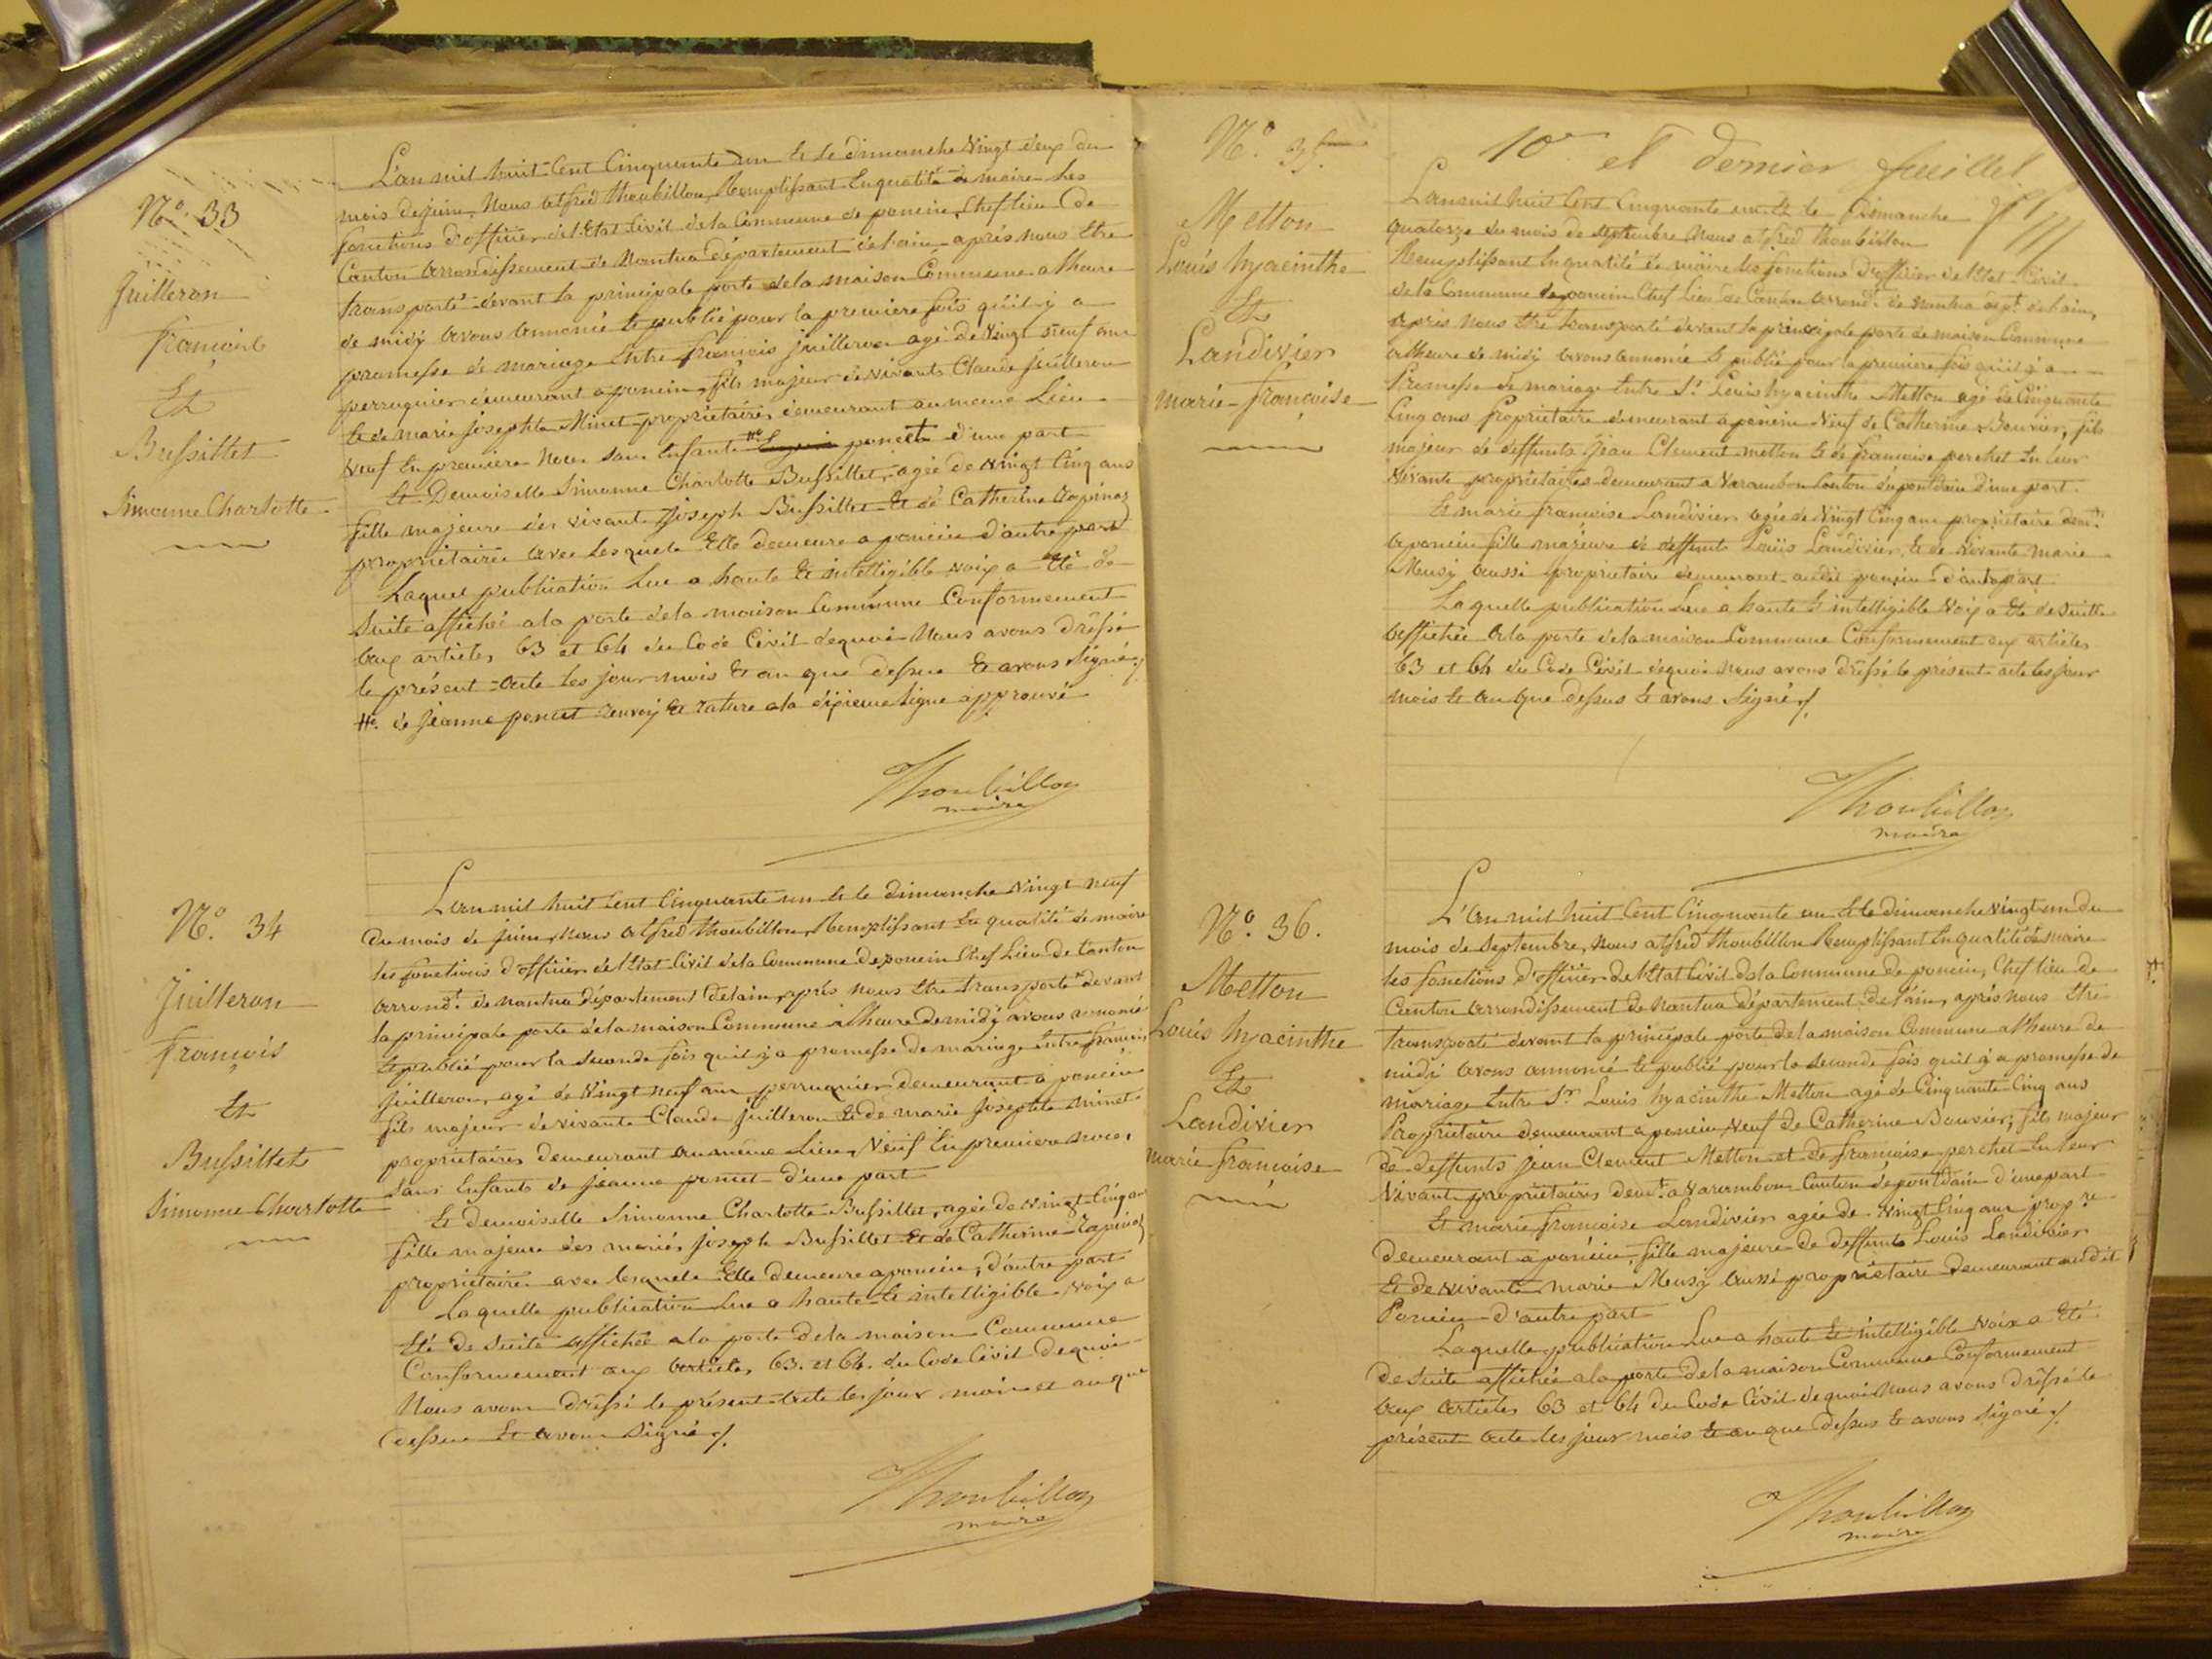 N.o 33
Juilleron
françois
Et
Bussillet
Simonne Charlotte
L'an mil huit Cent Cinquante un Et le dimanche Vingt deux du
mois de juin, Nous alfred Thoubillon, Remplissant En qualité de maire les
fonctions d'officier de l'Etat Civil de la Commune de poncin, Chef lieu de
Canton arrondissement de Nantua département de l'ain après nous Etre
transporté devant la principale porte de la maison Commune a l'heure
de midy avons annoncé Et publié pour la première fois qu'il y a
promesse de mariage Entre françois juilleron agé de Vingt neuf ans
perruquier demeurant a poncin, fils majeur de vivants Claude Juilleron
Et de marie josephte Minet propriétaires demeurant au meme Lieu
Veuf En premiere Noces sans Enfants #o poncet d'une part
Et Demoiselle Simonne Charlotte Bussillet, agée de vingt Cinq ans
fille majeure des vivants Joseph Bussillet Et de Catherine Rapinaz
propriétaires avec lesquels Elle demeure a poncin d'autre part
Laquel publication Lue a haute Et intelligible voix a Eté de
Suite affichée a la porte de la maison Commune Conformement
aux articles 63 et 64 du Code Civil dequoi Nous avons dréssé
le présent acte les jour mois Et an que dessus Et avons Signé ./.
#o de jeanne poncet renvoy Et rature a la dixieme ligne approuvé
Thoubillon
maire
N.o 34
Juilleron
françois
Et
Bussillet
Simonne Charlotte
L'an mil huit Cent Cinquante un Et le dimanche Vingt neuf
du mois de juin, Nous alfred Thoubillon, Remplissant En qualité de maire
les fonctions d'officier de l'Etat Civil de la Commune de poncin Chef Lieu de Canton
arrond.t de nantua département de l'ain, après nous Etre transporté devant
la principale porte de la maison Commune a l'heure de midy avons annoncé
Et publié pour la seconde fois qu'il y a promesse de mariage Entre françois
juilleron, agé de Vingt neuf ans, perruquier demeurant a poncin
fils majeur de vivants Claude Juilleron Et de marie Josephte minet
propriétaires demeurant au même Lieu, Veuf En premiere noces
Sans Enfants de jeanne poncet d'une part
Et demoiselle Simonne Charlotte Bussillet, agée de vingt Cinq ans
fille majeure des mariés joseph Bussillet Et de Catherine Rapinaz
propriétaires avec lesquels Elle demeure a poncin, d'autre part
Laquelle publication Lue a haute Et intelligible voix a
Eté de suite affichée a la porte de la maison Commune
Conformement aux articles 63. et 64. du Code Civil dequoi
Nous avons dréssé le présent acte les jour mois et an que
dessus Et avons Signé ./.
Thoubillon
maire
N.o 35.
Metton
Louis hyacinthe
Et
Landivier
marie françoise
10e et dernier feuillet
L'an mil huit Cent Cinquante un Et le Dimanche
quatorze du mois de septembre, Nous alfred thoubillon
Remplissant En qualité de maire les fonctions d'officier de l'Etat Civil
de la Commune de poncin Chef Lieu de Canton arrond.t de nantua dept. de l'ain,
après nous Etre transporté devant la principale porte de maison Commune
a l'heure de midy avons annoncé Et publié pour la premiere fois qu'il y a
Promesse de mariage Entre Sr. Louis hyacinthe Metton agé de Cinquante
Cinq ans Propriétaire demeurant a poncin Veuf de Catherine Bouvier, fils
majeur de deffunts Jean Clement metton Et de françoise perchet En leur
Vivants propriétaires demeurant a Varambon Canton de pontdain d'une part
Et marie françoise Landivier agée de Vingt Cinq ans propriétaire dem.t
a poncin fille majeure de deffunts Louis Landivier, Et de vivante marie
Musy aussi propriétaire demeurant audit poncin d'autre part
Laquelle publication Lue a haute Et intelligible Voix a Eté de suitte
affichée a la porte de la maison Commune Conformement aux articles
63 et 64 du Code Civil dequoi nous avons dréssé le présent acte les jour
mois Et an que dessus Et avons Signé ./.
Thoubillon
maire
N.o 36.
Metton
Louis hyacinthe
Et
Landivier
marie françoise
L'an mil huit Cent Cinquante un Et le dimanche vingt un du
mois de Septembre, Nous alfred thoubillon Remplissant En qualité de maire
les fonctions d'officier de l'Etat Civil de la Commune de poncin, Chef lieu de
Canton arrondissement de Nantua département de l'ain, après nous Etre
transporté devant la principale porte de la maison Commune a l'heure de
midy avons annoncé Et publié pour la seconde fois qu'il y a promesse de
mariage Entre Sr. Louis hyacinthe Metton agé de Cinquante Cinq ans
Propriétaire demeurant a poncin Veuf de Catherine Bouvier, fils majeur
de deffunts jean Clement Metton et de françoise perchet En leur
Vivants propriétaires dem.t a Varambon Canton de pontdain d'une part
Et marie françoise Landivier agée de Vingt Cinq ans prop.re
demeurant a poncin, fille majeure de deffunts Louis Landivier
Et de vivante marie Musy aussi propriétaire demeurant audit
Poncin d'autre part
Laquelle publication Lue a haute Et intelligible Voix a Eté
de suite affichée a la porte de la maison Commune Conformement
aux articles 63 et 64 du Code Civil dequoi Nous avons dréssé le
présent acte les jour mois Et an que dessus Et avons Signé ./.
Thoubillon
maire